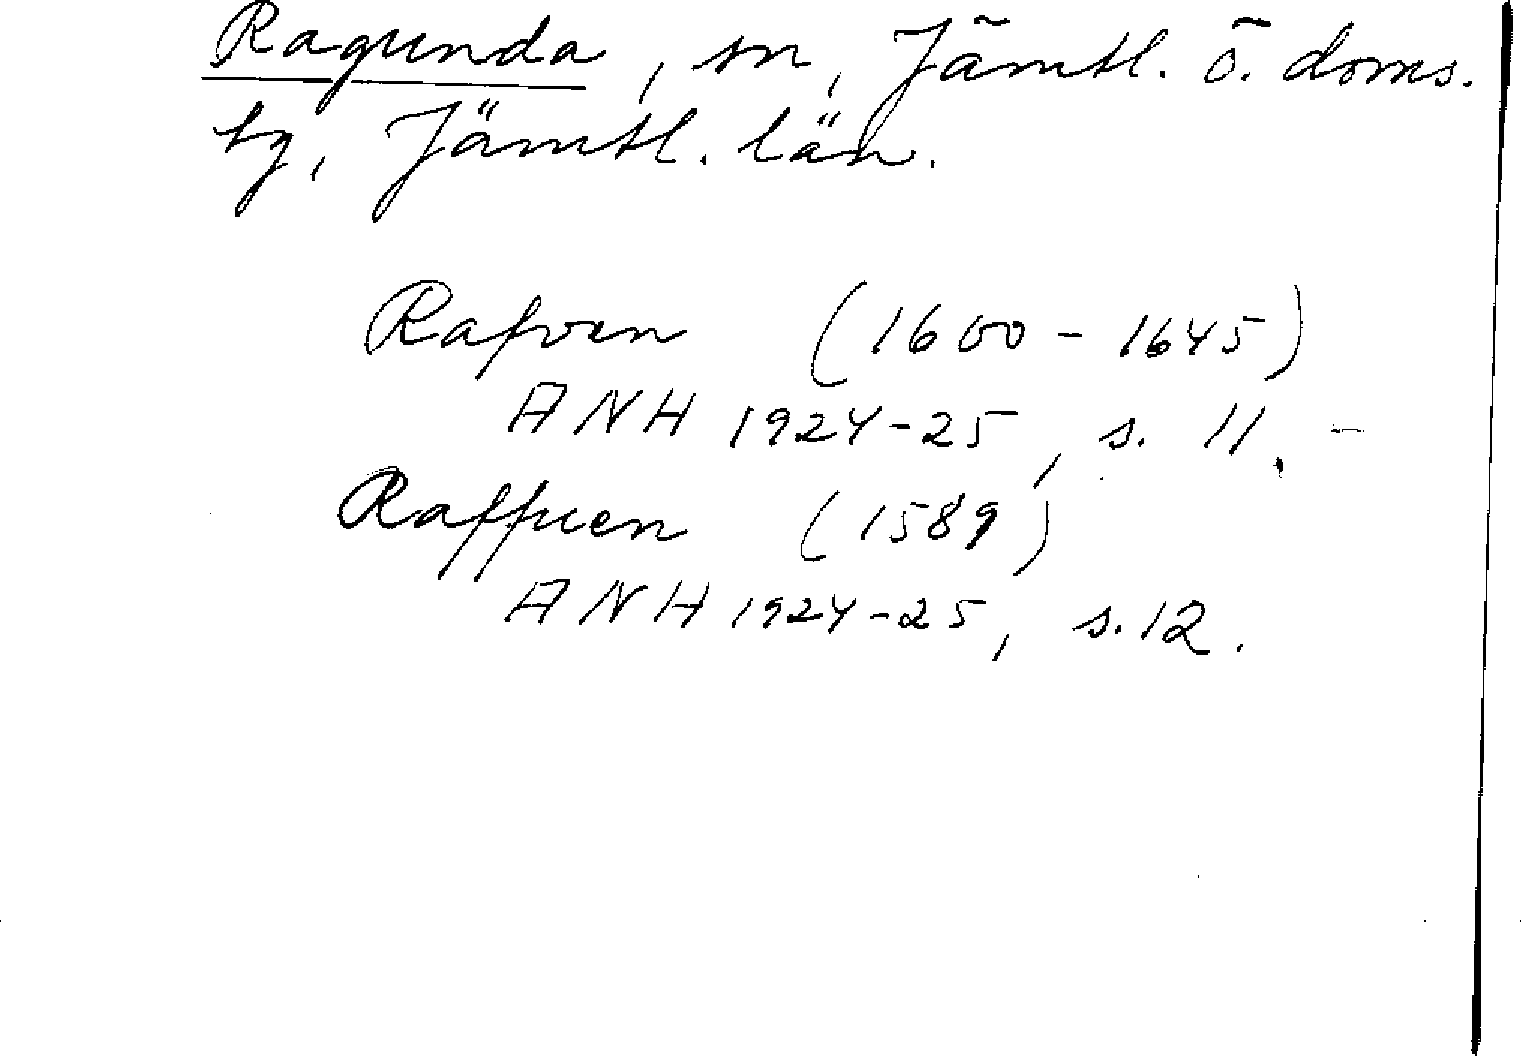 Ragunda, sn, Jämtl. ö. doms.
hg, Jämtl. län.
Rafven (1600-1645)
ANH 1924-25, s. 11. -
Raffuen (1589)
ANH 1924-25, s. 12.